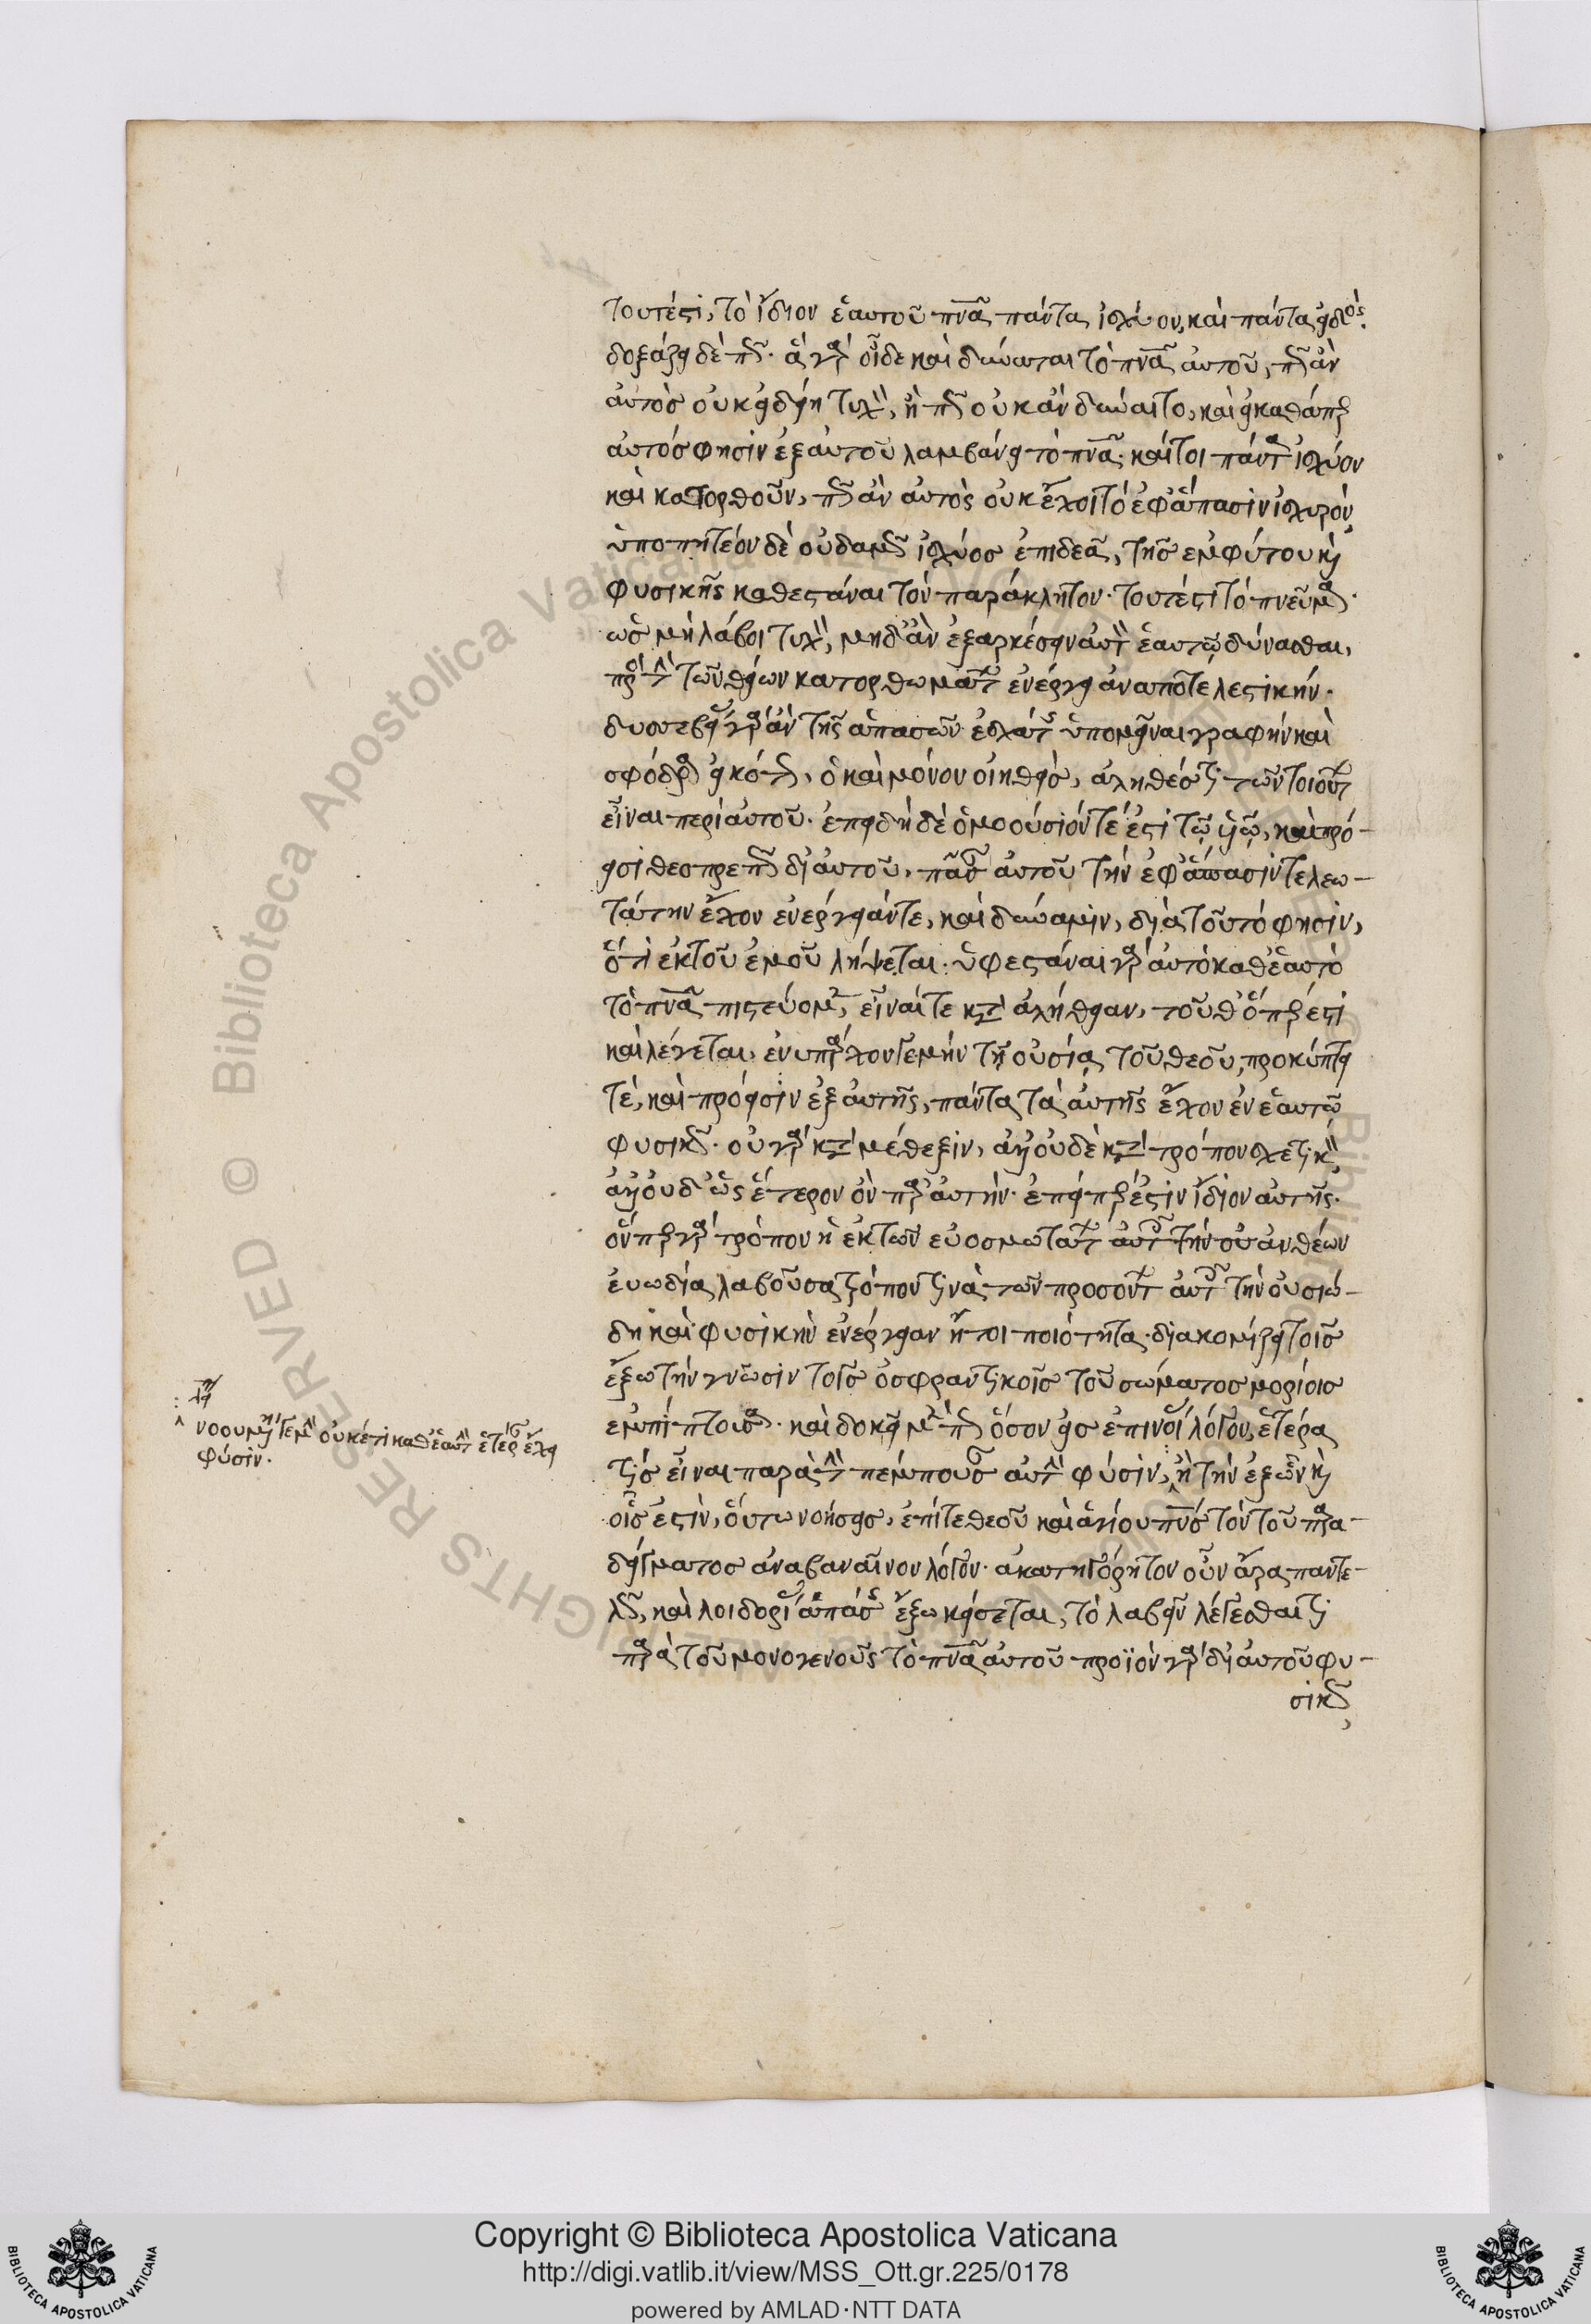 τουτέστι, τὸ ἴδιον ἑαυτοῦ πνᾶ πάντα ἰσχύον, καὶ πάντα εἰδός.
δοξάζει δὲ πῶς. ἆ γὰρ οἶδε καὶ δύναται τὸ πνᾶ αὐτοῦ, πῶς ἂν
αὐτὸς οὐκ εἰδείη τυχὸν, ἢ πῶς οὐκ ἂν δύναιτο, καὶ εἰ καθάπερ
αὐτός φησιν ἐξ αὐτοῦ λαμβάνει τὸ πνᾶ. καίτοι πάντα ἰσχύον
καὶ κατορθοῦν, πῶς ἂν αὐτὸς οὐκ ἔχοι τὸ ἐφ' ἅπασιν ἰσχυρόν,
ὑποπτητέον δὲ οὐδαμῶς ἰσχύος ἐπιδεᾶ, τῆς ἐμφύτου καὶ
φυσικῆς καθεστάναι τὸν παράκλητον. τουτέστι τὸ πνεῦμα.
ὡς μὴ λάβοι τυχὸν, μηδ' ἂν ἐξαρκέσειν αὐτὸν ἑαυτῷ δύνασθαι,
πρὸς τὴν τῶν θείων κατορθωμάτων ἐνέργειαν ἀποτελεστικήν.
δυσσεβεῖν γὰρ ἂν τῆς ἁπασῶν ἐσχάτης ὑπομεῖναι γραφὴν καὶ
σφόδρα εἰκότως, ὁ καὶ μόνον οἰηθεὶς, ἀληθές τι τῶν τοιούτων
εἶναι περὶ αὐτοῦ. ἐπειδὴ δὲ ὁμοούσιόν τέ ἐστι τῷ υἱῷ, καὶ πρό-
εισι θεοπρεπῶς δι' αὐτοῦ, πᾶσαν αὐτοῦ τὴν ἐφ' ἅπασιν τελεω-
τάτην ἔχον ἐνέργειάν τε, καὶ δύναμιν, διὰ τοῦτό φησιν,
ὅτι ἐκ τοῦ ἐμοῦ λήψεται. ὑφεστάναι γὰρ αὐτὸ καθ' ἑαυτὸ
τὸ πνᾶ πιστεύομεν, εἶναί τε κατὰ ἀλήθειαν, τοῦθ' ὅπερ ἐστὶ
καὶ λέγεται, ἐνυπάρχον γε μὴν τῇ οὐσίᾳ τοῦ θεοῦ, προκύπτει
τὲ, καὶ πρόεισιν ἐξ αὐτῆς, πάντα τὰ αὐτῆς ἔχον ἐν ἑαυτῷ
φυσικῶς. οὐ γὰρ κατὰ μέθεξιν, ἀλλ' οὐδὲ κατὰ τρόπον σχετικὸν,
ἀλλ' οὐδ' ὡς ἕτερον ὂν παρ' αὐτήν. ἐπείπερ ἐστὶν ἴδιον αὐτῆς.
ὅνπερ γὰρ τρόπον ἡ ἐκ τῶν εὐοσμωτάτων ἀνθέων
εὐωδία λαβοῦσα τρόπον τινὰ τῶν προσόντων αὐτῶν τὴν οὐσιώ-
δη καὶ φυσικὴν ἐνέργειαν ἤτοι ποιότητα. διακομίζει τοῖς
ἔξω τὴν γνῶσιν τοῖς ὀσφραντικοῖς τοῦ σώματος μορίοις
ἐμπίπτουσα. καὶ δοκεῖ μέν πως ὅσον εἰς ἐπινοίας λόγον, ἑτέρα
τις εἶναι παρὰ τὴν πέμπουσαν αὐτὴν φύσιν, ἢ τὴν ἐξ ὧν καὶ
οἷς ἐστὶν, οὕτω νοήσεις, ἐπί τε θεοῦ καὶ ἁγίου πνς τὸν τοῦ παρα-
δείγματος ἀναβαίνων λόγον. ἀκατηγόρητον οὖν ἄρα παντε-
λῶς, καὶ λοιδορίας ἁπάσης ἔξω κείσεται, τὸ λαβεῖν λέγεσθαί τι
παρὰ τοῦ μονογενοῦς τὸ πνᾶ αὐτοῦ προϊὸν γὰρ δι' αὐτοῦ φυ-
σικῶς,
νοουμένη γε μὴν οὐκέτι καθ' ἑαυτὴν ἑτέραν ἔχει
φύσιν.
Copyright © Biblioteca Apostolica Vaticana
http://digi.vatlib.it/view/MSS_Ott.gr.225/0178
powered by AMLAD·NTT DATA